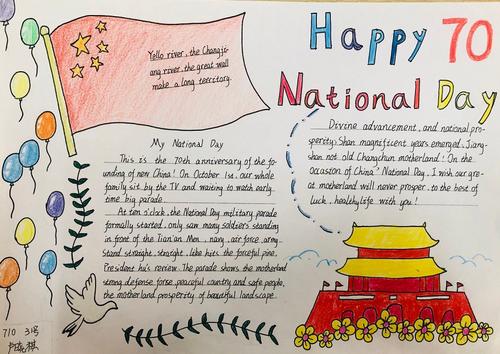 Happy 70
National Day
Yello river, the Changji-
ang river, the great wall
make a long territory.
My National Day
This is the 70th anniversary of the fo-
unding of new China! On October 1st, our whole
family sit by the TV and waiting to watch early
time big parade.
At ten o'clock, the National Day military parade
formally started, only saw many soldiers standing
in front of the Tian'an Men, navy, air force, army
stand straight, straight, like hits the forceful pine,
President hu's review. The parade shows the motherland
strong defense forse, peaceful country and safe people,
the motherland prosperity of beautiful landscape.
Divine advancement, and national pro-
sperity; Shan magnificent years emerged, Jiang-
shan not old Changchun motherland! On the
occasion of China' National Day, I wish our gre-
at motherland will never prosper, to the best of
luck, healthy life with you!
710 31号